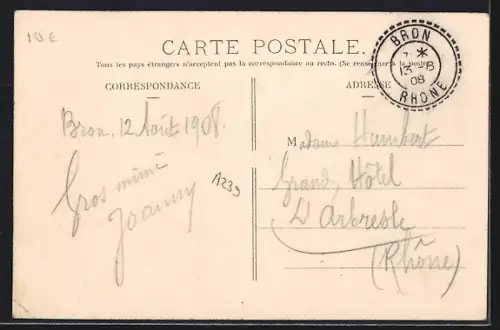 10 €
CARTE POSTALE.
Tous les pays étrangers n'acceptent pas la correspondance au recto. (Se renseigner à la poste)
CORRESPONDANCE
ADRESSE
BRON
13 - 8
08
RHONE
Bron, 12 Août 1908.
Gros mimi
Joanny
A239
Madame Humbert
Grand Hôtel
L'Arbresle
(Rhône)